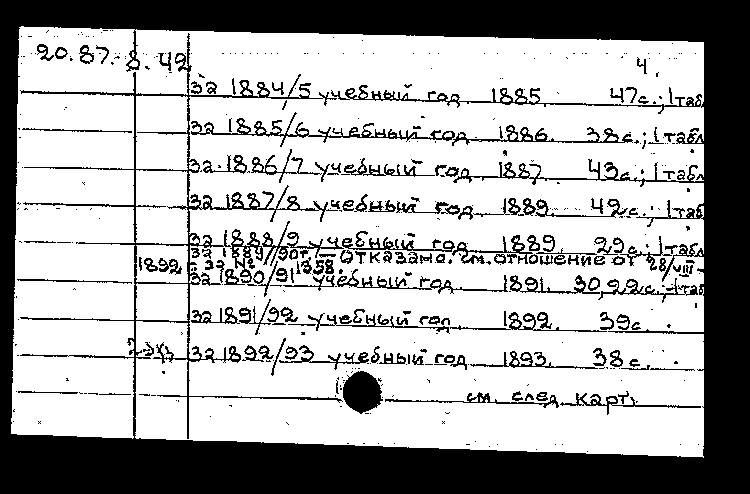 20.87.8.42
4.
за 1884/5 учебный год 1885. 47с.; 1 табл
за 1885/6 учебный год 1886. 38с.; 1 табл
за 1886/7 учебный год 1887. 43с.; 1 табл
за 1887/8 учебный год 1889. 42с.; 1 таб
за 1888/9 учебный год 1889. 29с.; 1 табл
за 1889/90г. – Отказано. см. отношение от 28/VIII –
1892 – за № 1258.
за 1890/91 учебный год. 1891. 30,22с.; 1 таб
за 1891/92 учебный год. 1892. 39с.
2 экз за 1892/93 учебный год 1893. 38с.
см. след. карт.